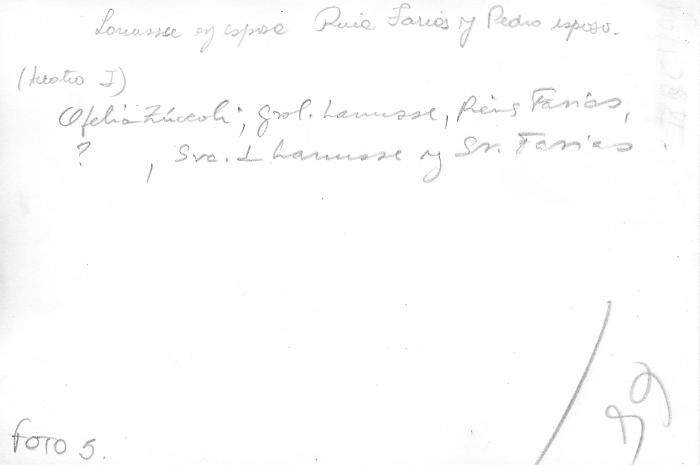 Lanusse y esposa Farías y Pedro esposo.
(teatro I)
Ofelia Zúccoli; Gral. Lanusse, Farías,
?, Sra. Lanusse y Sr. Farías.
Foto 5.